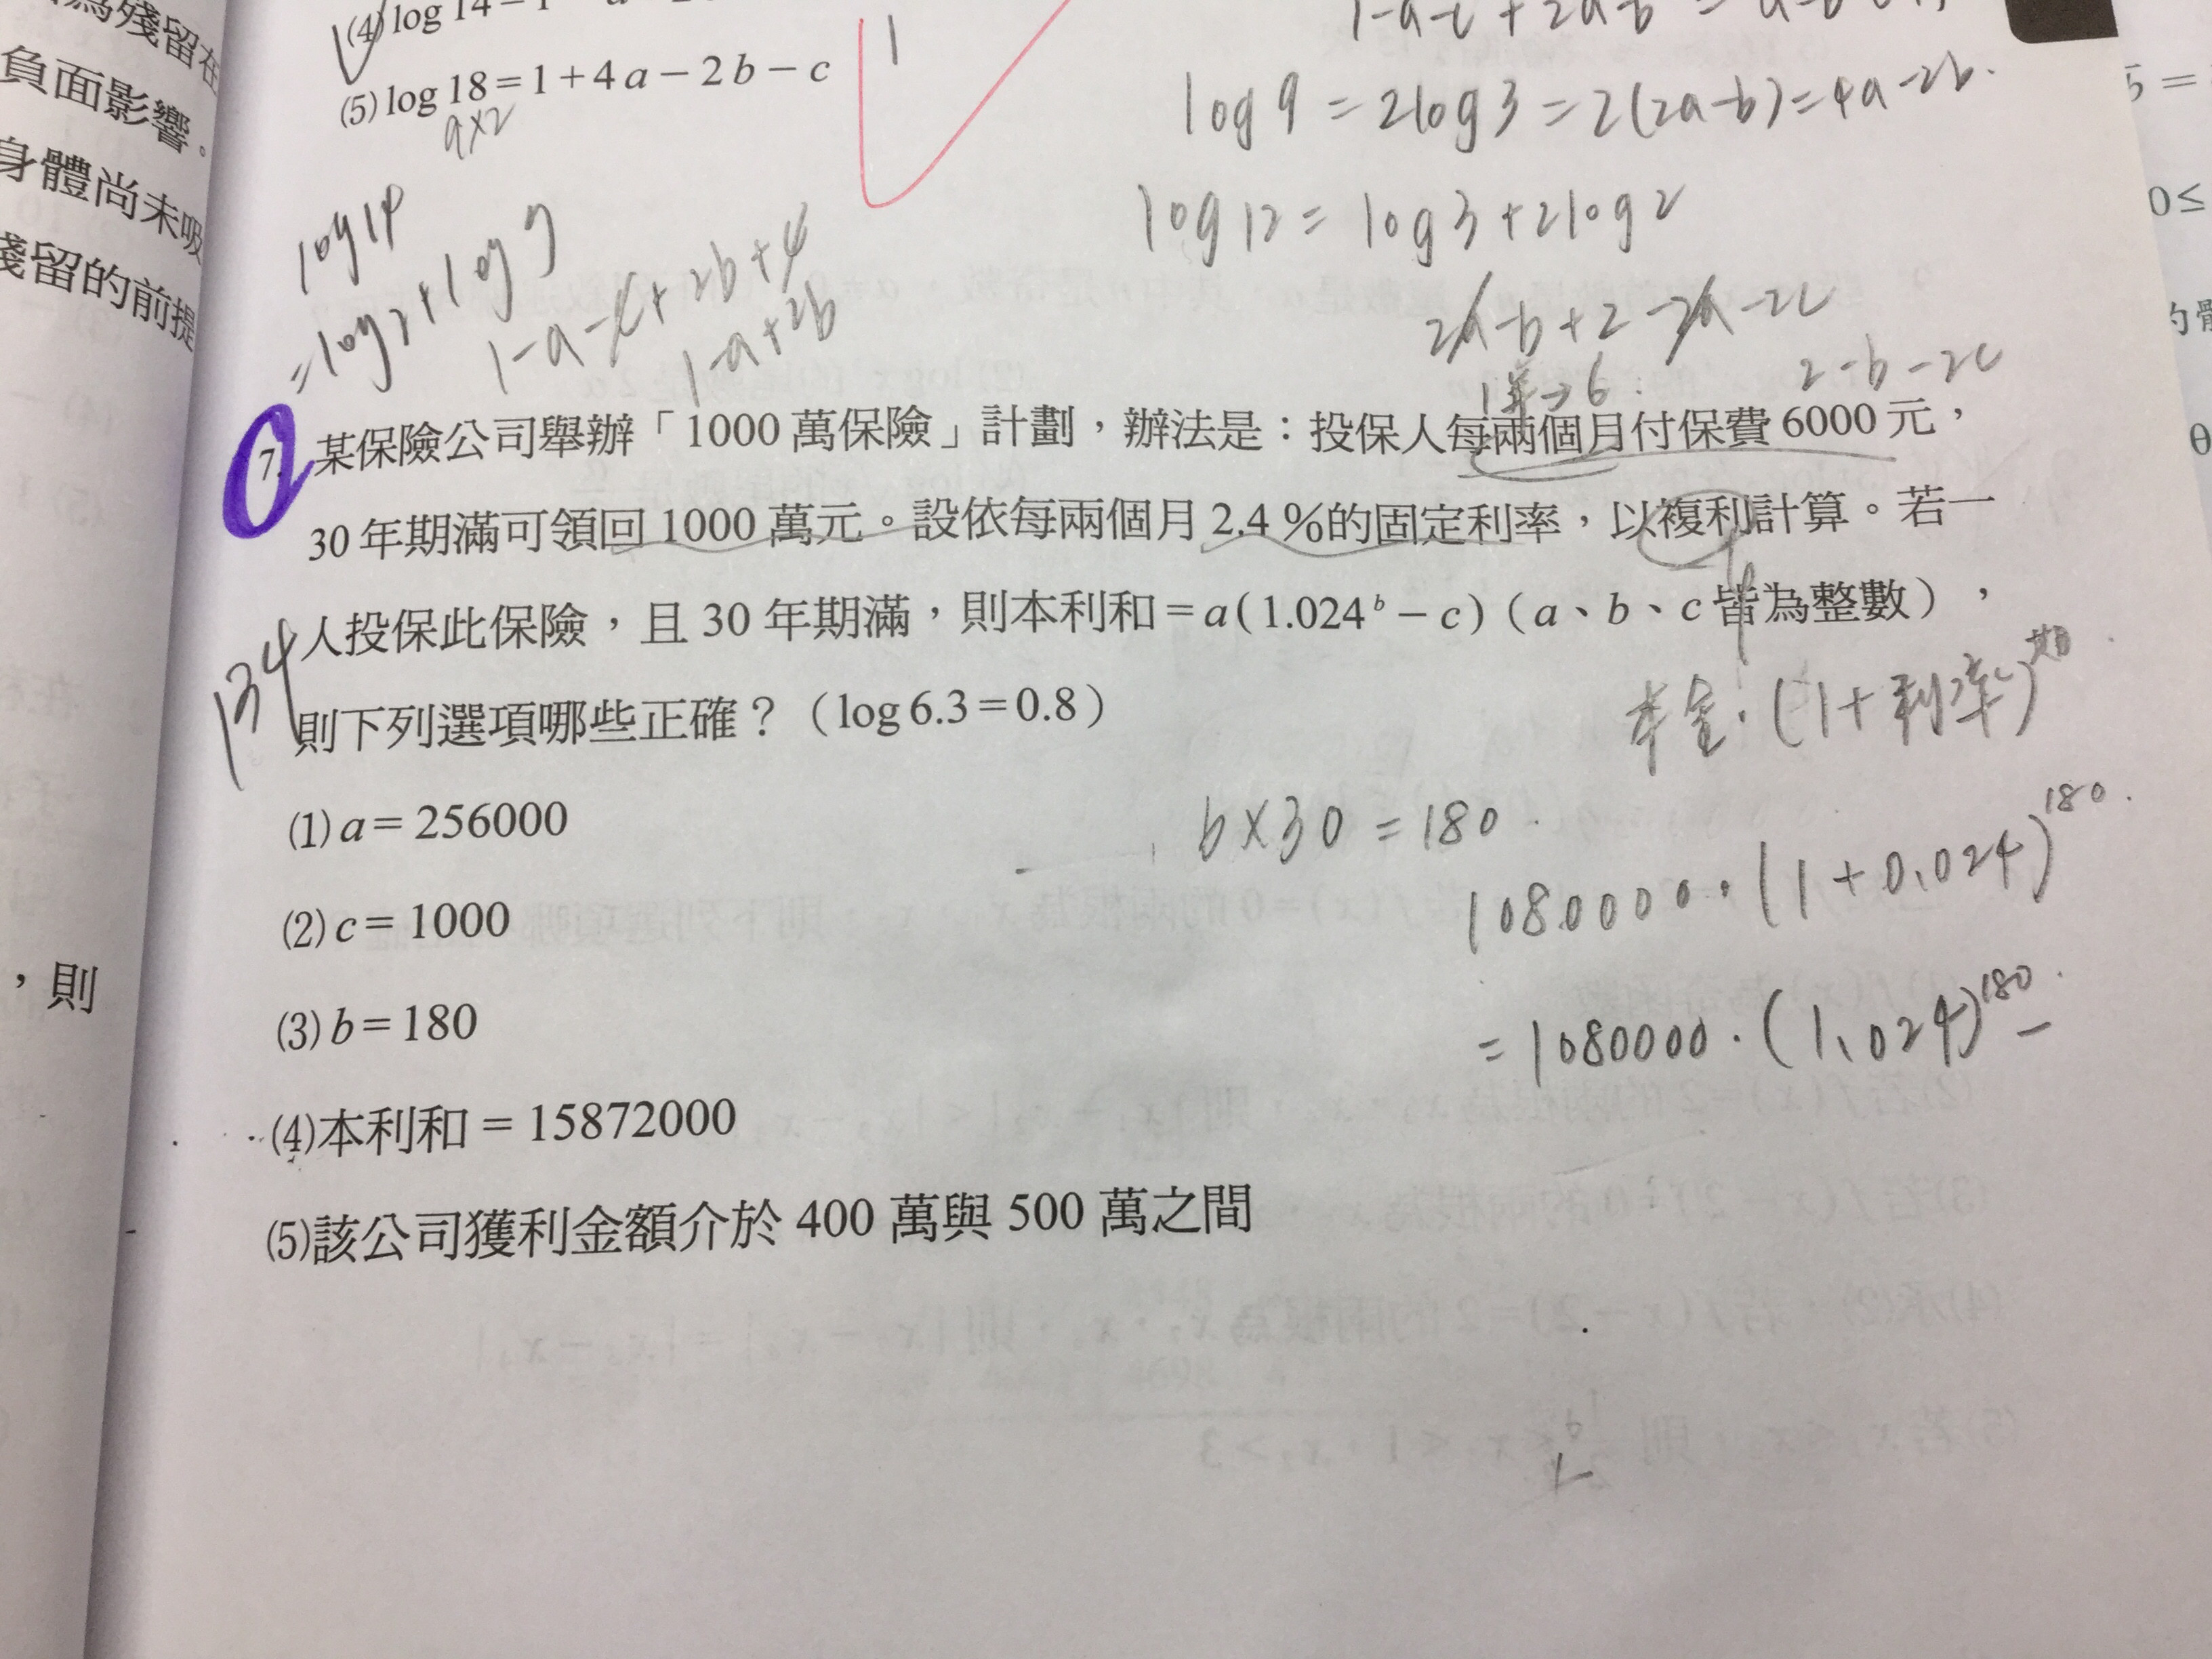 為殘留在
負面影響。
身體尚未吸
殘留的前提
，則
(4) log 14 = 1
(5) log 18 = 1 + 4a − 2b − c
9×2
1
log 9 = 2log 3 = 2(2a-b) = 4a-2b.
log 12 = log 3 + 2log 2
2a-b+2-2a-2c
2-b-2c
1年→6
7. 某保險公司舉辦「1000 萬保險」計劃，辦法是：投保人每兩個月付保費 6000 元，
30 年期滿可領回 1000 萬元。設依每兩個月 2.4 %的固定利率，以複利計算。若一
人投保此保險，且 30 年期滿，則本利和 = a(1.024ᵇ − c)（a、b、c 皆為整數），
則下列選項哪些正確？（log 6.3 = 0.8）
134
本金·(1+利率)期
(1) a = 256000
(2) c = 1000
(3) b = 180
(4)本利和 = 15872000
(5)該公司獲利金額介於 400 萬與 500 萬之間
6×30 = 180.
1080000·(1+0.024)¹⁸⁰.
= 1080000·(1.024)¹⁸⁰ −
5 =
0≤
θ